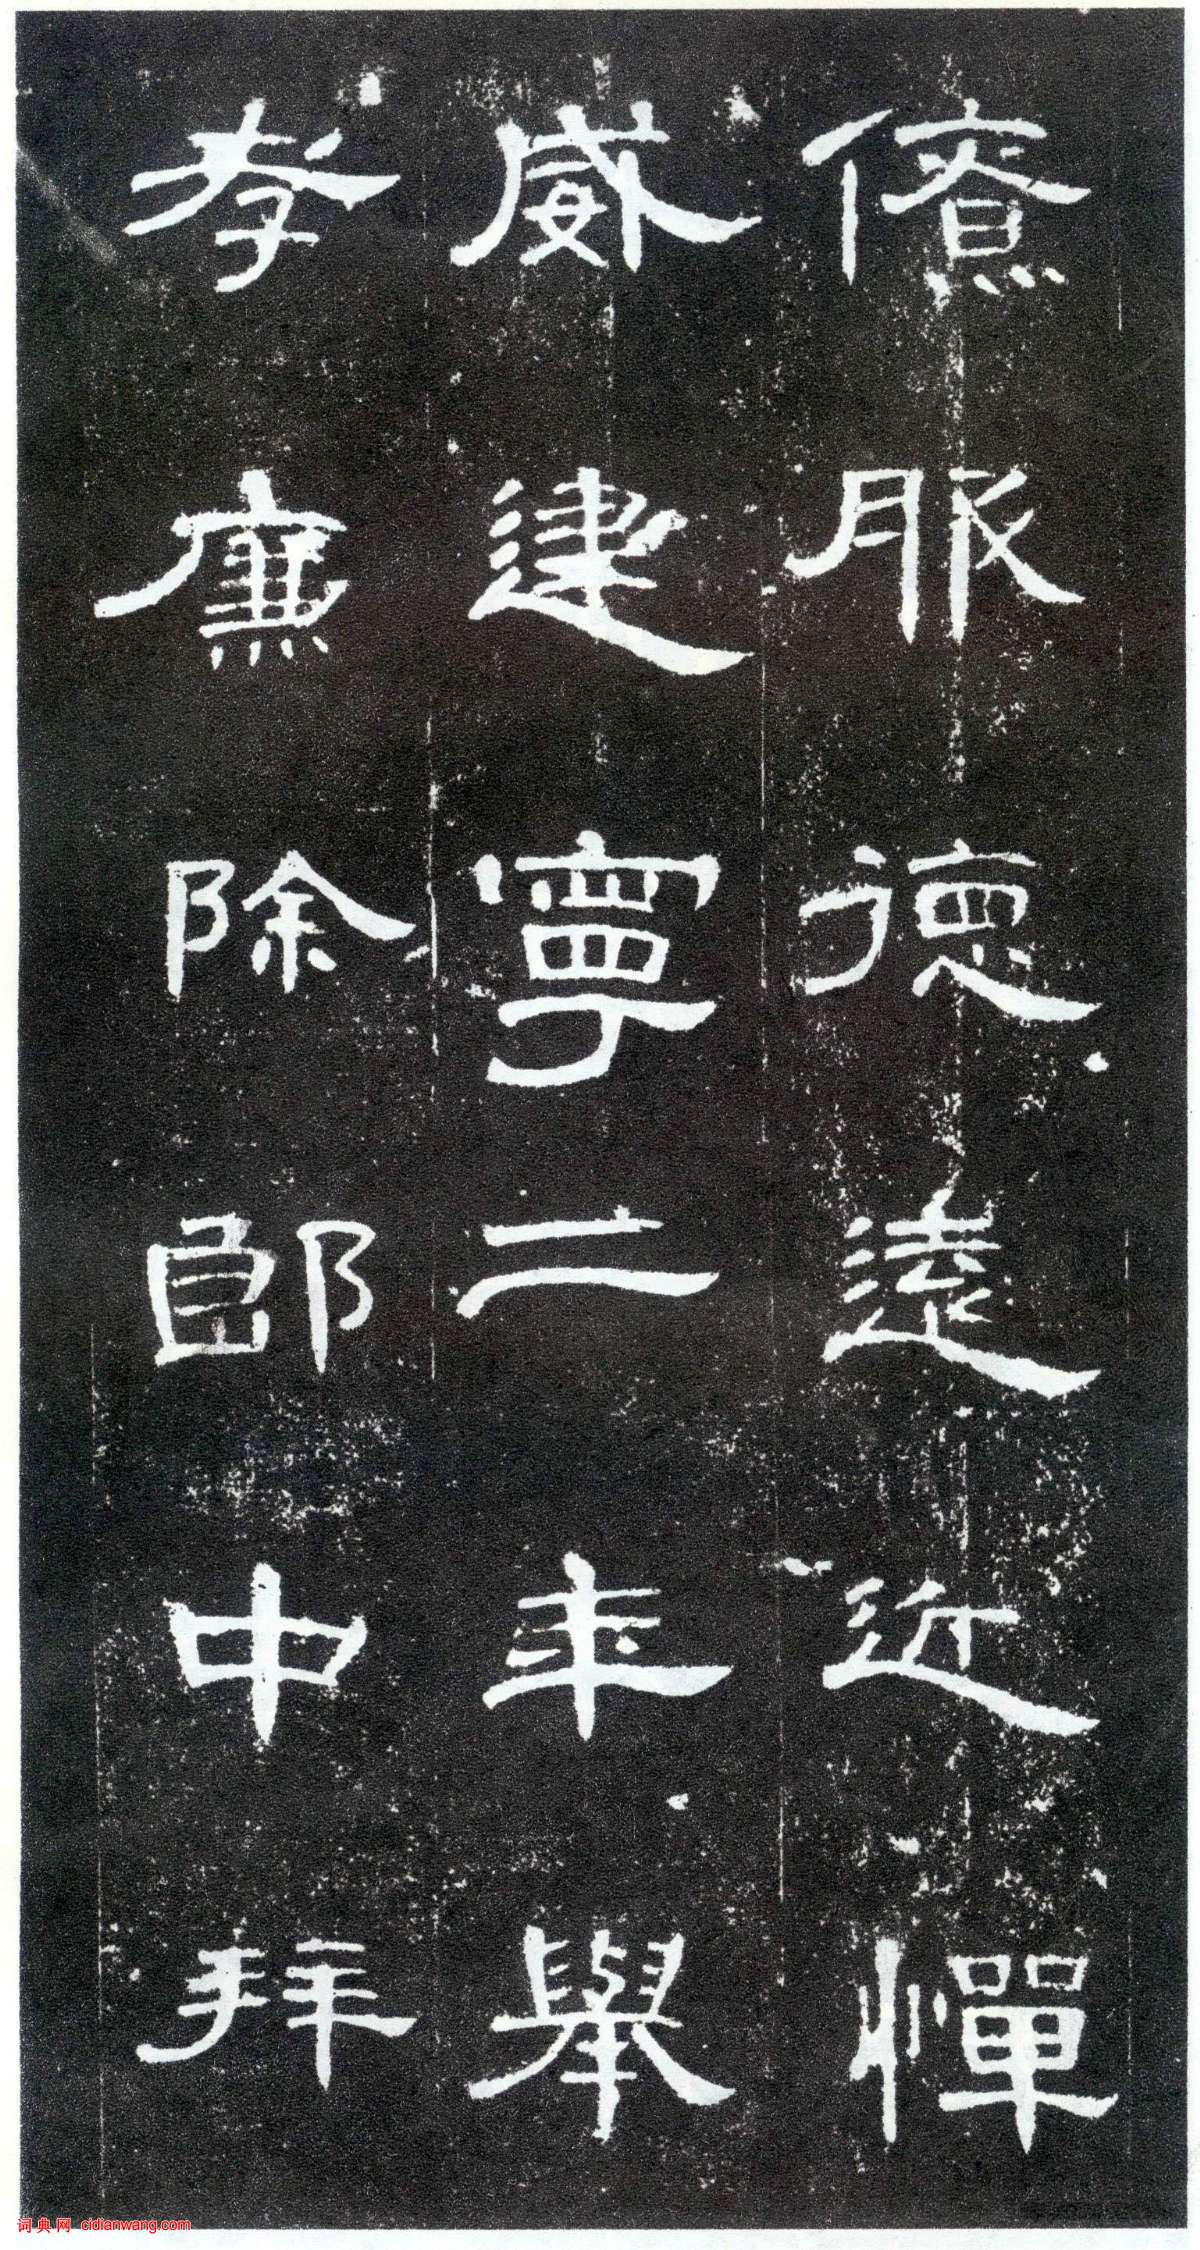 僚服德遠近憚
威建寧二年舉
孝廉除郎中拜
词典网 cidianwang.com